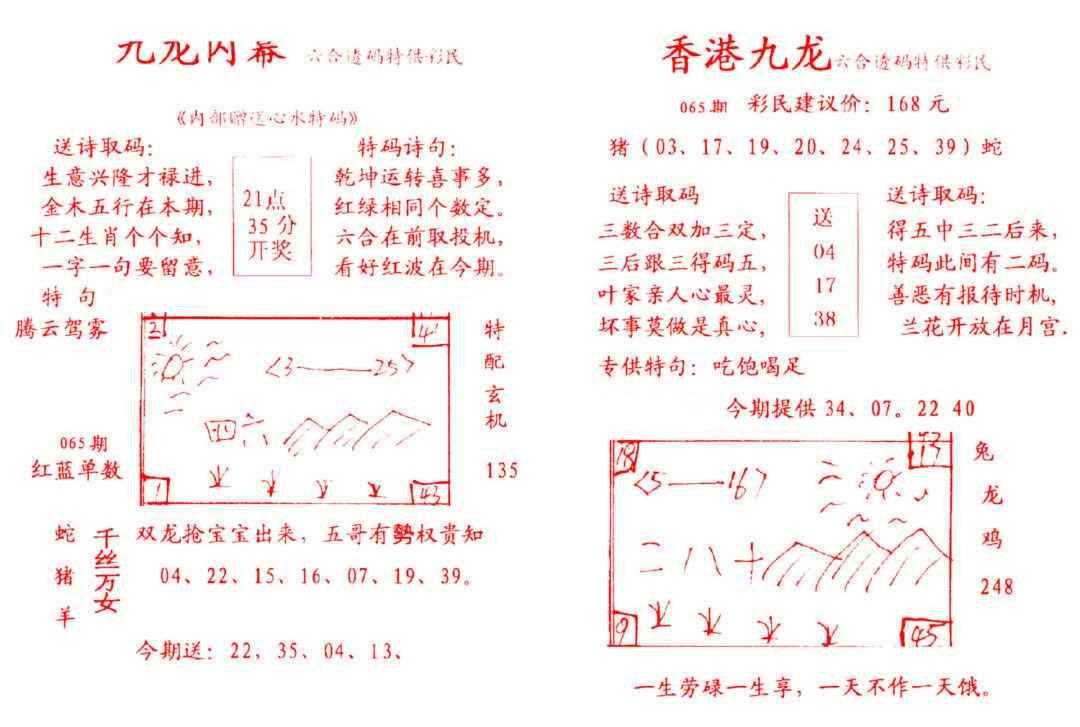 九龙内幕 六合透码特供彩民
《内部赠送心水特码》
送诗取码:
生意兴隆才禄进,
金木五行在本期,
十二生肖个个知,
一字一句要留意,
21点
35分
开奖
特码诗句:
乾坤运转喜事多,
红绿相同个数定。
六合在前取投机,
看好红波在今期。
特 句
腾云驾雾
065期
红蓝单数
2
41
<3——25>
四六
1
43
特
配
玄
机
135
蛇
猪
羊
千
丝
万
女
双龙抢宝宝出来, 五哥有勢权贵知
04、22、15、16、07、19、39。
今期送: 22、35、04、13、
香港九龙 六合透码特供彩民
065期 彩民建议价: 168 元
猪(03、17、19、20、24、25、39)蛇
送诗取码
三数合双加三定,
三后跟三得码五,
叶家亲人心最灵,
坏事莫做是真心,
送
04
17
38
送诗取码:
得五中三二后来,
特码此间有二码。
善恶有报待时机,
兰花开放在月宫.
专供特句: 吃饱喝足
今期提供 34、07。22 40
18
13
<5——16>
二八十
9
45
兔
龙
鸡
248
一生劳碌一生享, 一天不作一天饿。